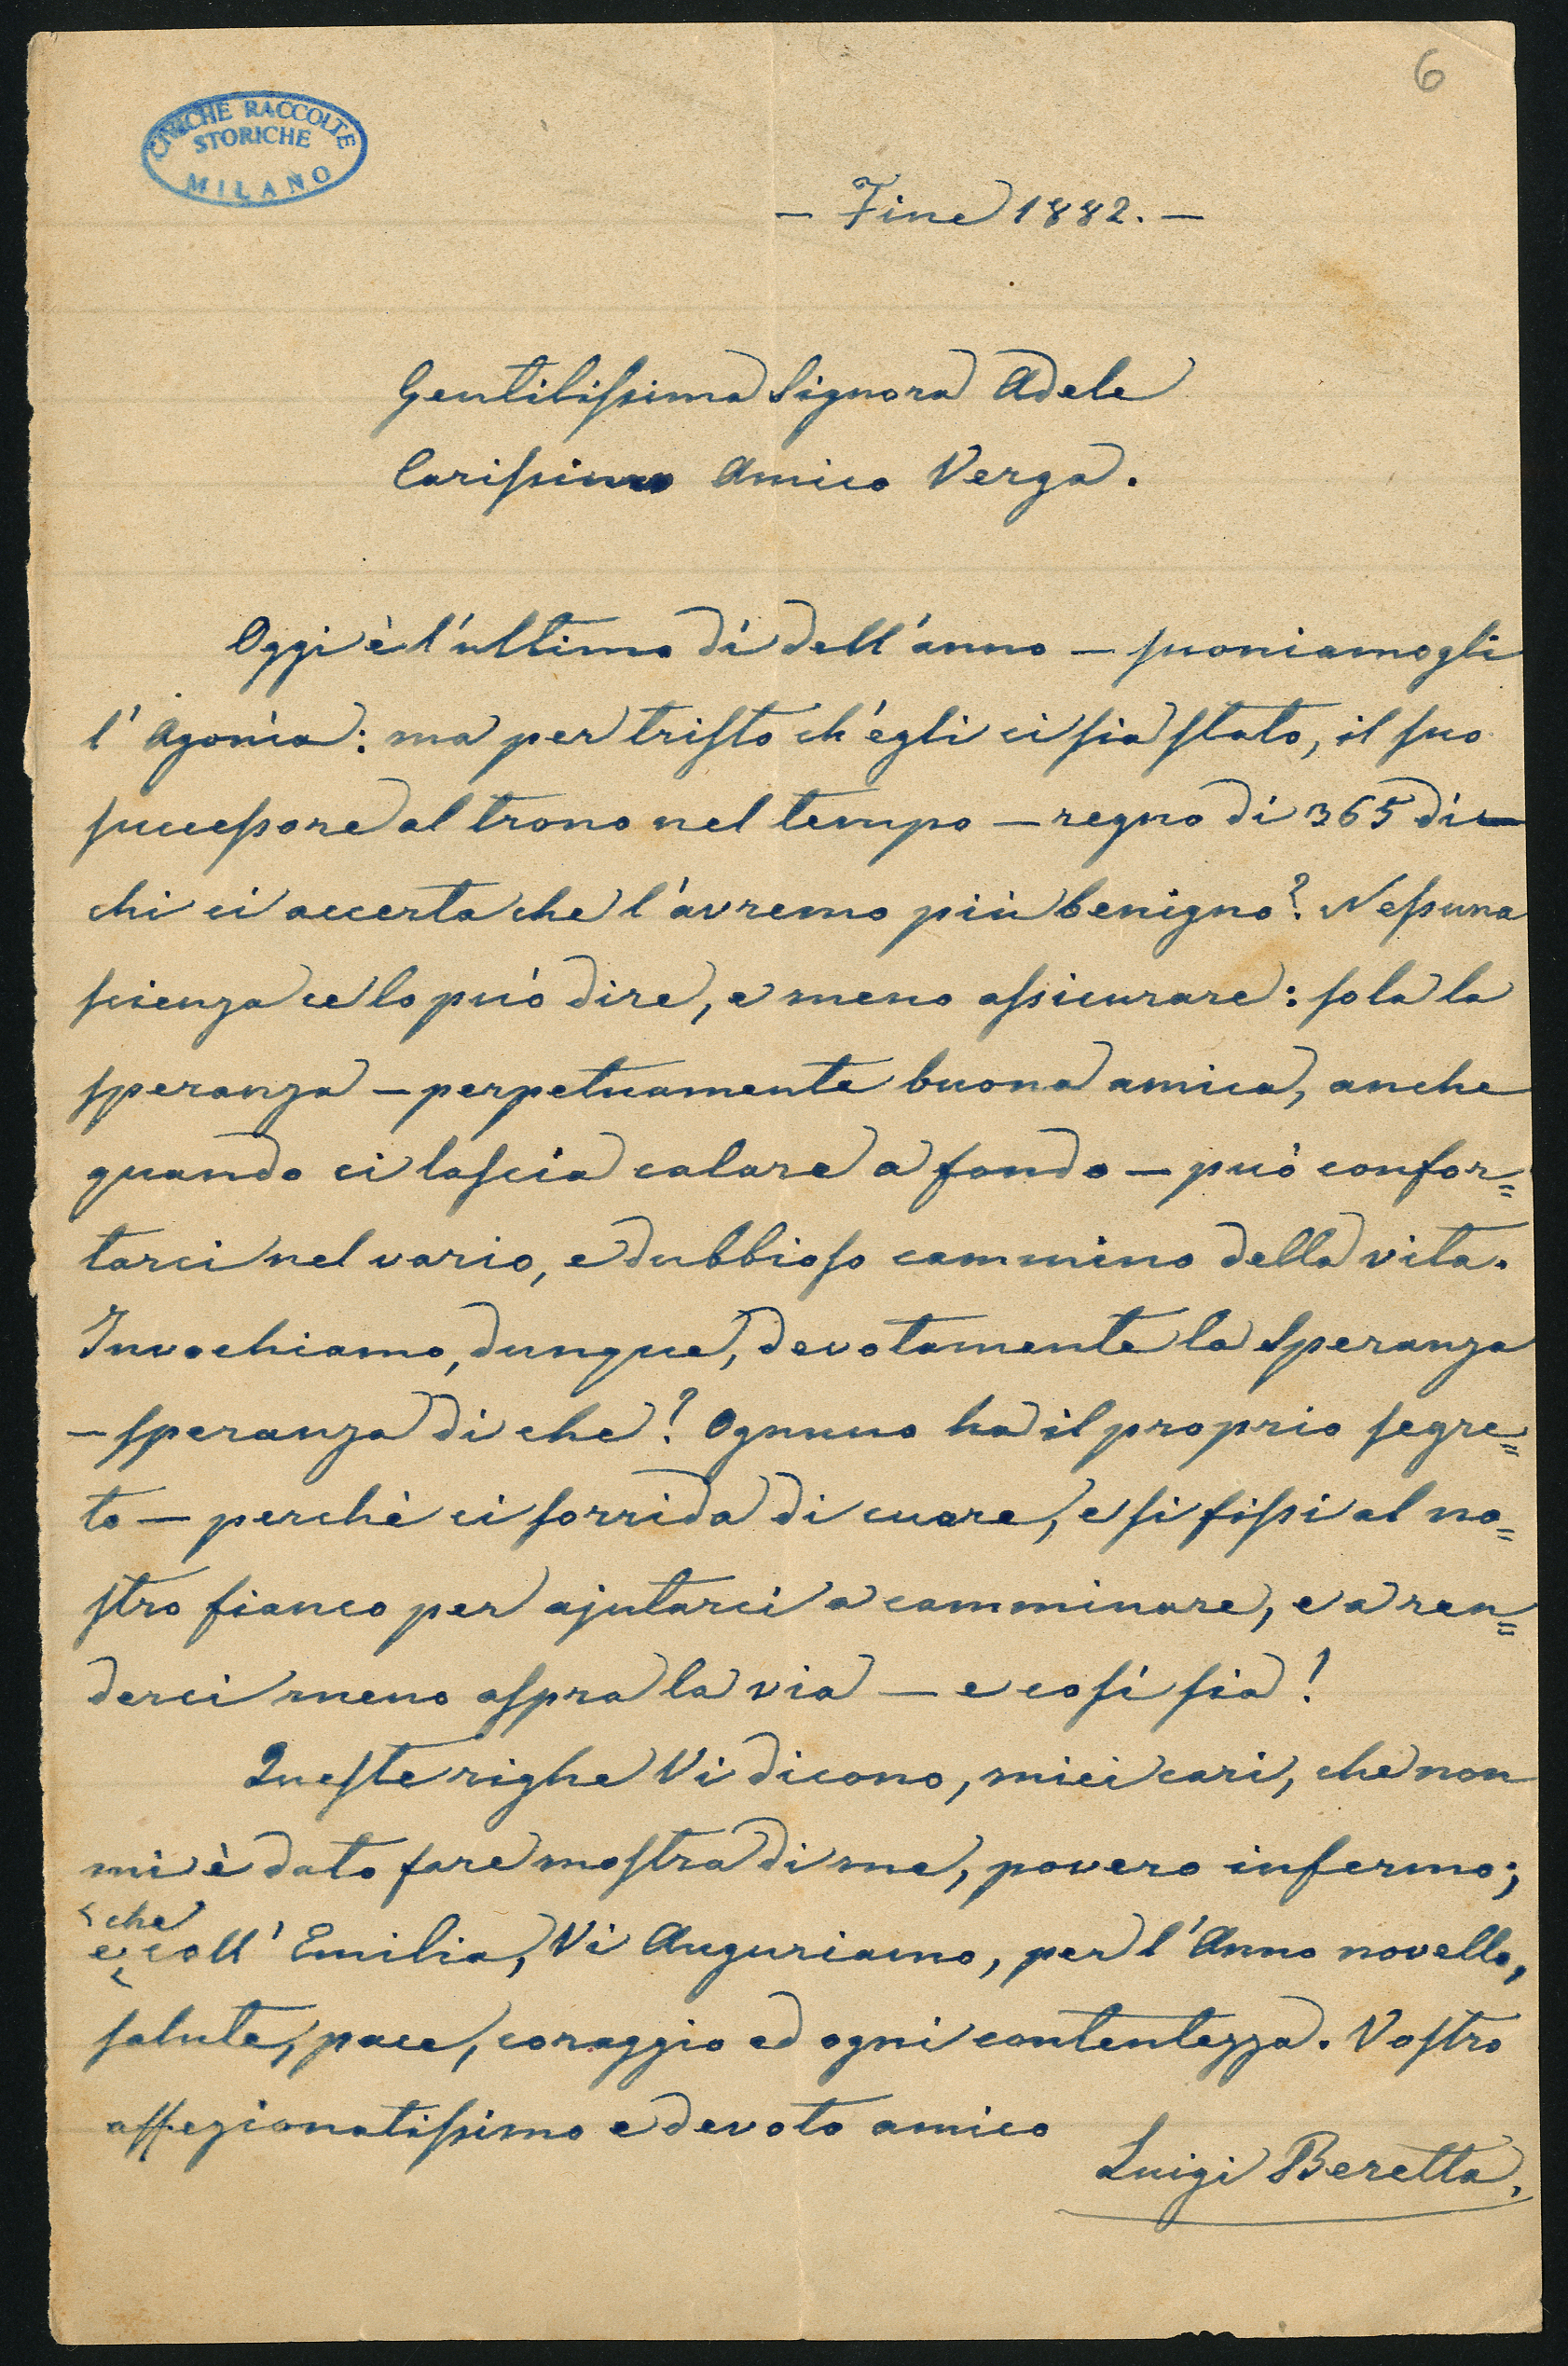 6
CIVICHE RACCOLTE
STORICHE
MILANO
– Fine 1882. –
Gentilissima Signora Adele
Carissimo Amico Verga.
Oggi è l'ultimo dì dell'anno – suoniamogli
l'Agonìa: ma per tristo ch'egli ci sia stato, il suo
successore al trono nel tempo – regno di 365 dì –
chi ci accerta che l'avremo più benigno? Nessuna
scienza ce lo può dire, e meno assicurare: sola la
speranza – perpetuamente buona amica, anche
quando ci lascia calare a fondo – può confor=
tarci nel vario, e dubbioso cammino della vita.
Invochiamo, dunque, devotamente la Speranza
– speranza di che? Ognuno ha il proprio segre=
to – perchè ci sorrida di cuore, e si fissi al no=
stro fianco per ajutarci a camminare, e a ren=
derci meno aspra la via – e così sia!
Queste righe Vi dicono, miei cari, che non
mi è dato fare mostra di me, povero infermo;
che
e coll'Emilia, Vi Auguriamo, per l'Anno novello,
salute, pace, coraggio ed ogni contentezza. Vostro
affezionatissimo e devoto amico
Luigi Beretta.